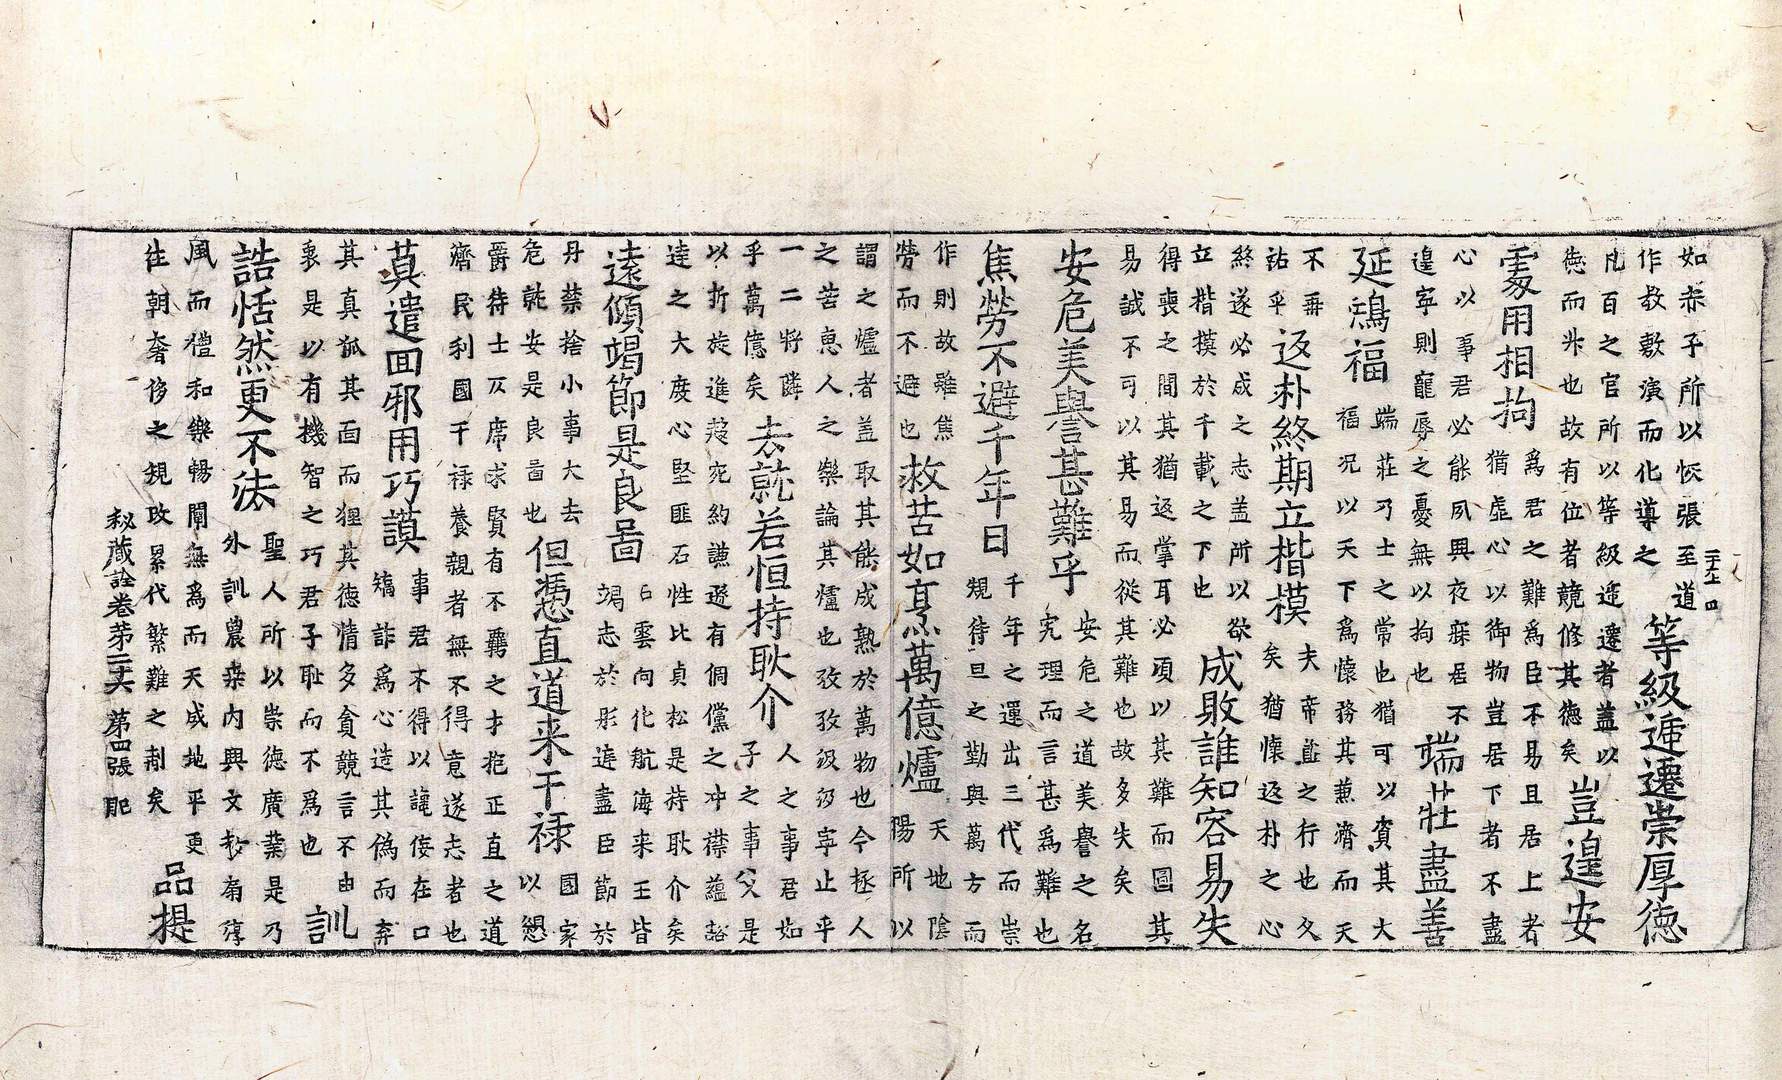 二十六 四
如赤子所以恢張至道
作教敷演而化導之
等級遞遷崇厚徳
凡百之官所以等級遞遷者蓋以
徳而升也故有位者競修其徳矣
豈遑安
處用相拘
爲君之難爲臣不易且居上者
猶虛心以御物豈居下者不盡
心以事君必能夙興夜寐居不
遑寧則寵辱之憂無以拘也
端莊盡善
延鴻福
端莊乃士之常也猶可以賓其大
福况以天下爲懷務其兼濟而天
不垂
祐乎
返朴終期立楷模
夫帝之行也久
矣猶懷返朴之心
終遂必成之志蓋所以欲
立楷模於千載之下也
成敗誰知容易失
得喪之間其猶返掌耳必須以其難而圖其
易誠不可以其易而従其難也故多失矣
安危美譽甚難乎
安危之道美譽之名
究理而言甚爲難也
焦勞不避千年日
千年之運出三代而崇
規待旦之勤與萬方而
作則故雖焦
勞而不避也
救苦如烹萬億爐
天地陰
陽所以
謂之爐者盖取其能成熟於萬物也今拯人
之苦恵人之樂論其爐也孜孜汲汲寧止乎
一二將隣
乎萬億矣
去就若恒持耿介
人之事君如
子之事父是
以折旋進趍宛約謙遜有倜儻之冲襟蘊豁
達之大度心堅匪石性比貞松是持耿介矣
遠傾竭節是良啚
占雲向化航海来王皆
竭志於彤逵盡臣節於
丹禁捨小事大去
危就安是良啚也
但憑直道来干禄
國家
以懸
爵待士仄席求賢有不羈之才抱正直之道
濟民利國干禄養親者無不得竟遂志者也
莫遣回邪用巧謨
事君不得以讒佞在口
矯詐爲心造其僞而弃
其真狐其面而狸其徳情多貪競言不由
衷是以有機智之巧君子恥而不爲也
訓
誥恬然更不法
聖人所以崇徳廣業是乃
外訓農桒内興文教扇淳
風而禮和樂暢闡無爲而天成地平更
往朝奢侈之規改累代繁難之制矣
品提
秘蔵詮卷第二十六 第四張 肥